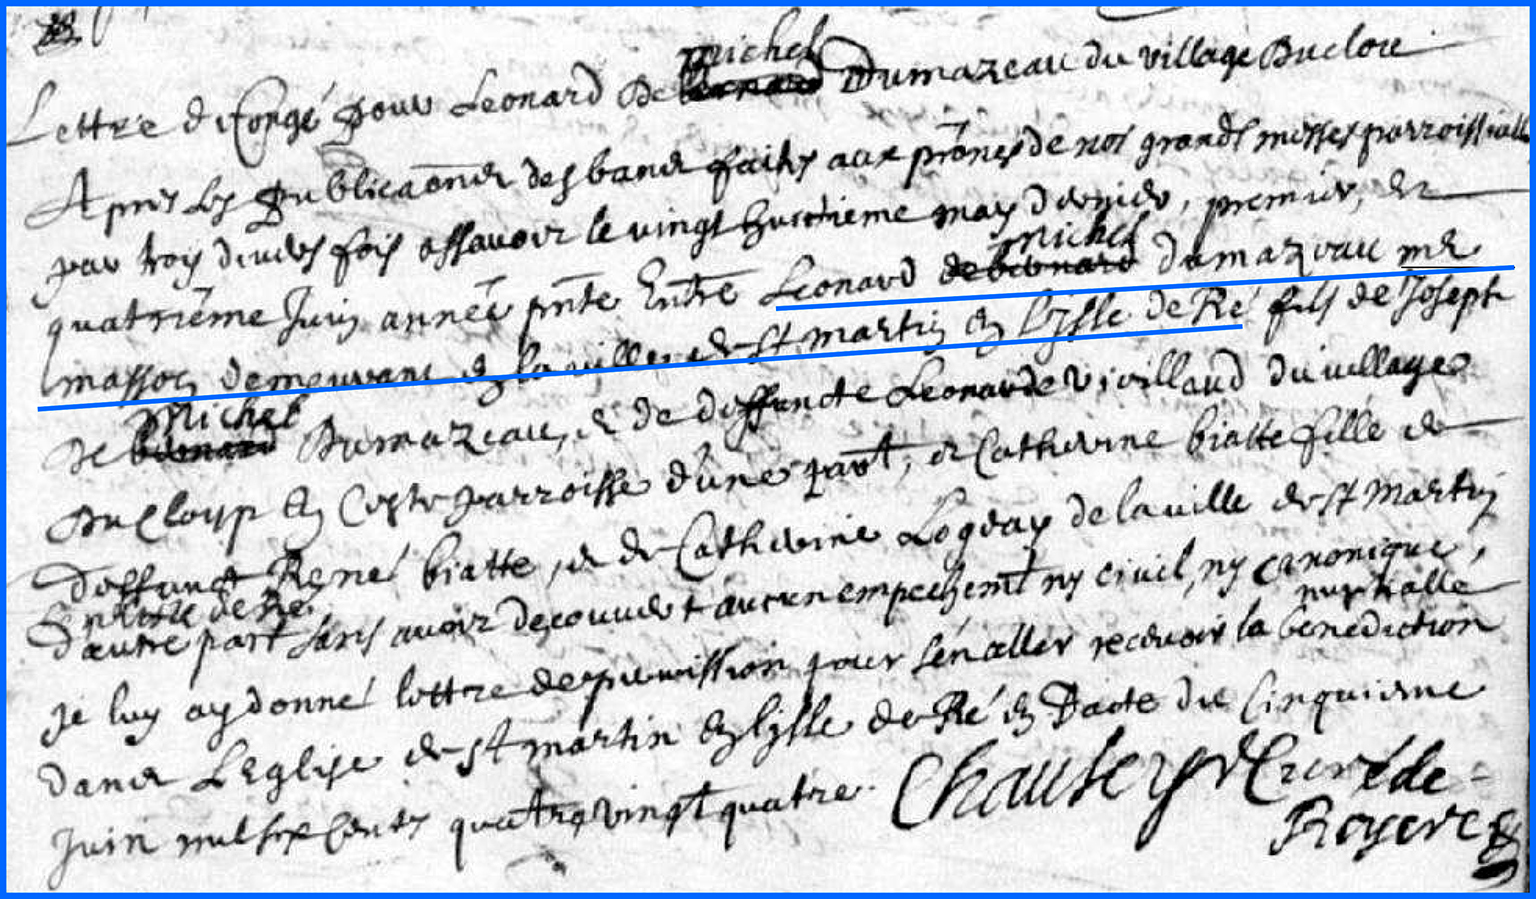 Lettre de Congé pour Leonard De michel bernard Dumazeau du village Ducloux
Apres les publicaons des bans faits aux prônes de nos grandes messes parroissialles
par trois divers fois assavoir le vingt huictieme may dernier, premier, et
quatriême Juin année pnte Entre Leonard de bernard michel dumazeau me
masson demeurant en la ville de St martin en l'isle de Ré fils de Joseph
De bernard Michel Dumazeau, et de deffuncte Leonarde vivillaud du village
Du Cloup en Ceste parroisse d'une part, et Catherine biatte fille de
deffunct René biatte, et de Catherine Logeay de la ville de St Martin
En l'isle de Ré
d'autre part sans avoir decouvert aucun empechemt ny civil, ny canonique,
je luy ay donné lettre de permission pour s'en aller recevoir la benediction nuptialle
dans L'Eglise de St martin en l'isle de Ré en Dacte du Cinquieme
Juin mil six Cents quatre vingt quatre.
Curé de
Royere